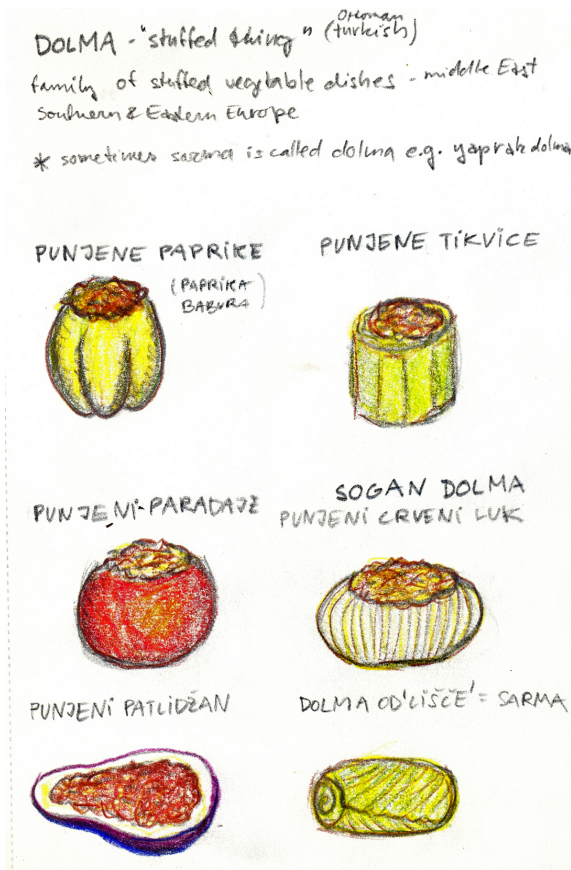 DOLMA - "stuffed thing" (Ottoman turkish)
family of stuffed vegetable dishes - middle East
Southern & Eastern Europe
* sometimes sarma is called dolma e.g. yaprak dolma
PUNJENE PAPRIKE
(PAPRIKA
BABURA)
PUNJENE TIKVICE
PUNJENI PARADAJZ
SOGAN DOLMA
PUNJENI CRVENI LUK
PUNJENI PATLIDŽAN
DOLMA OD 'LIŠĆE' = SARMA